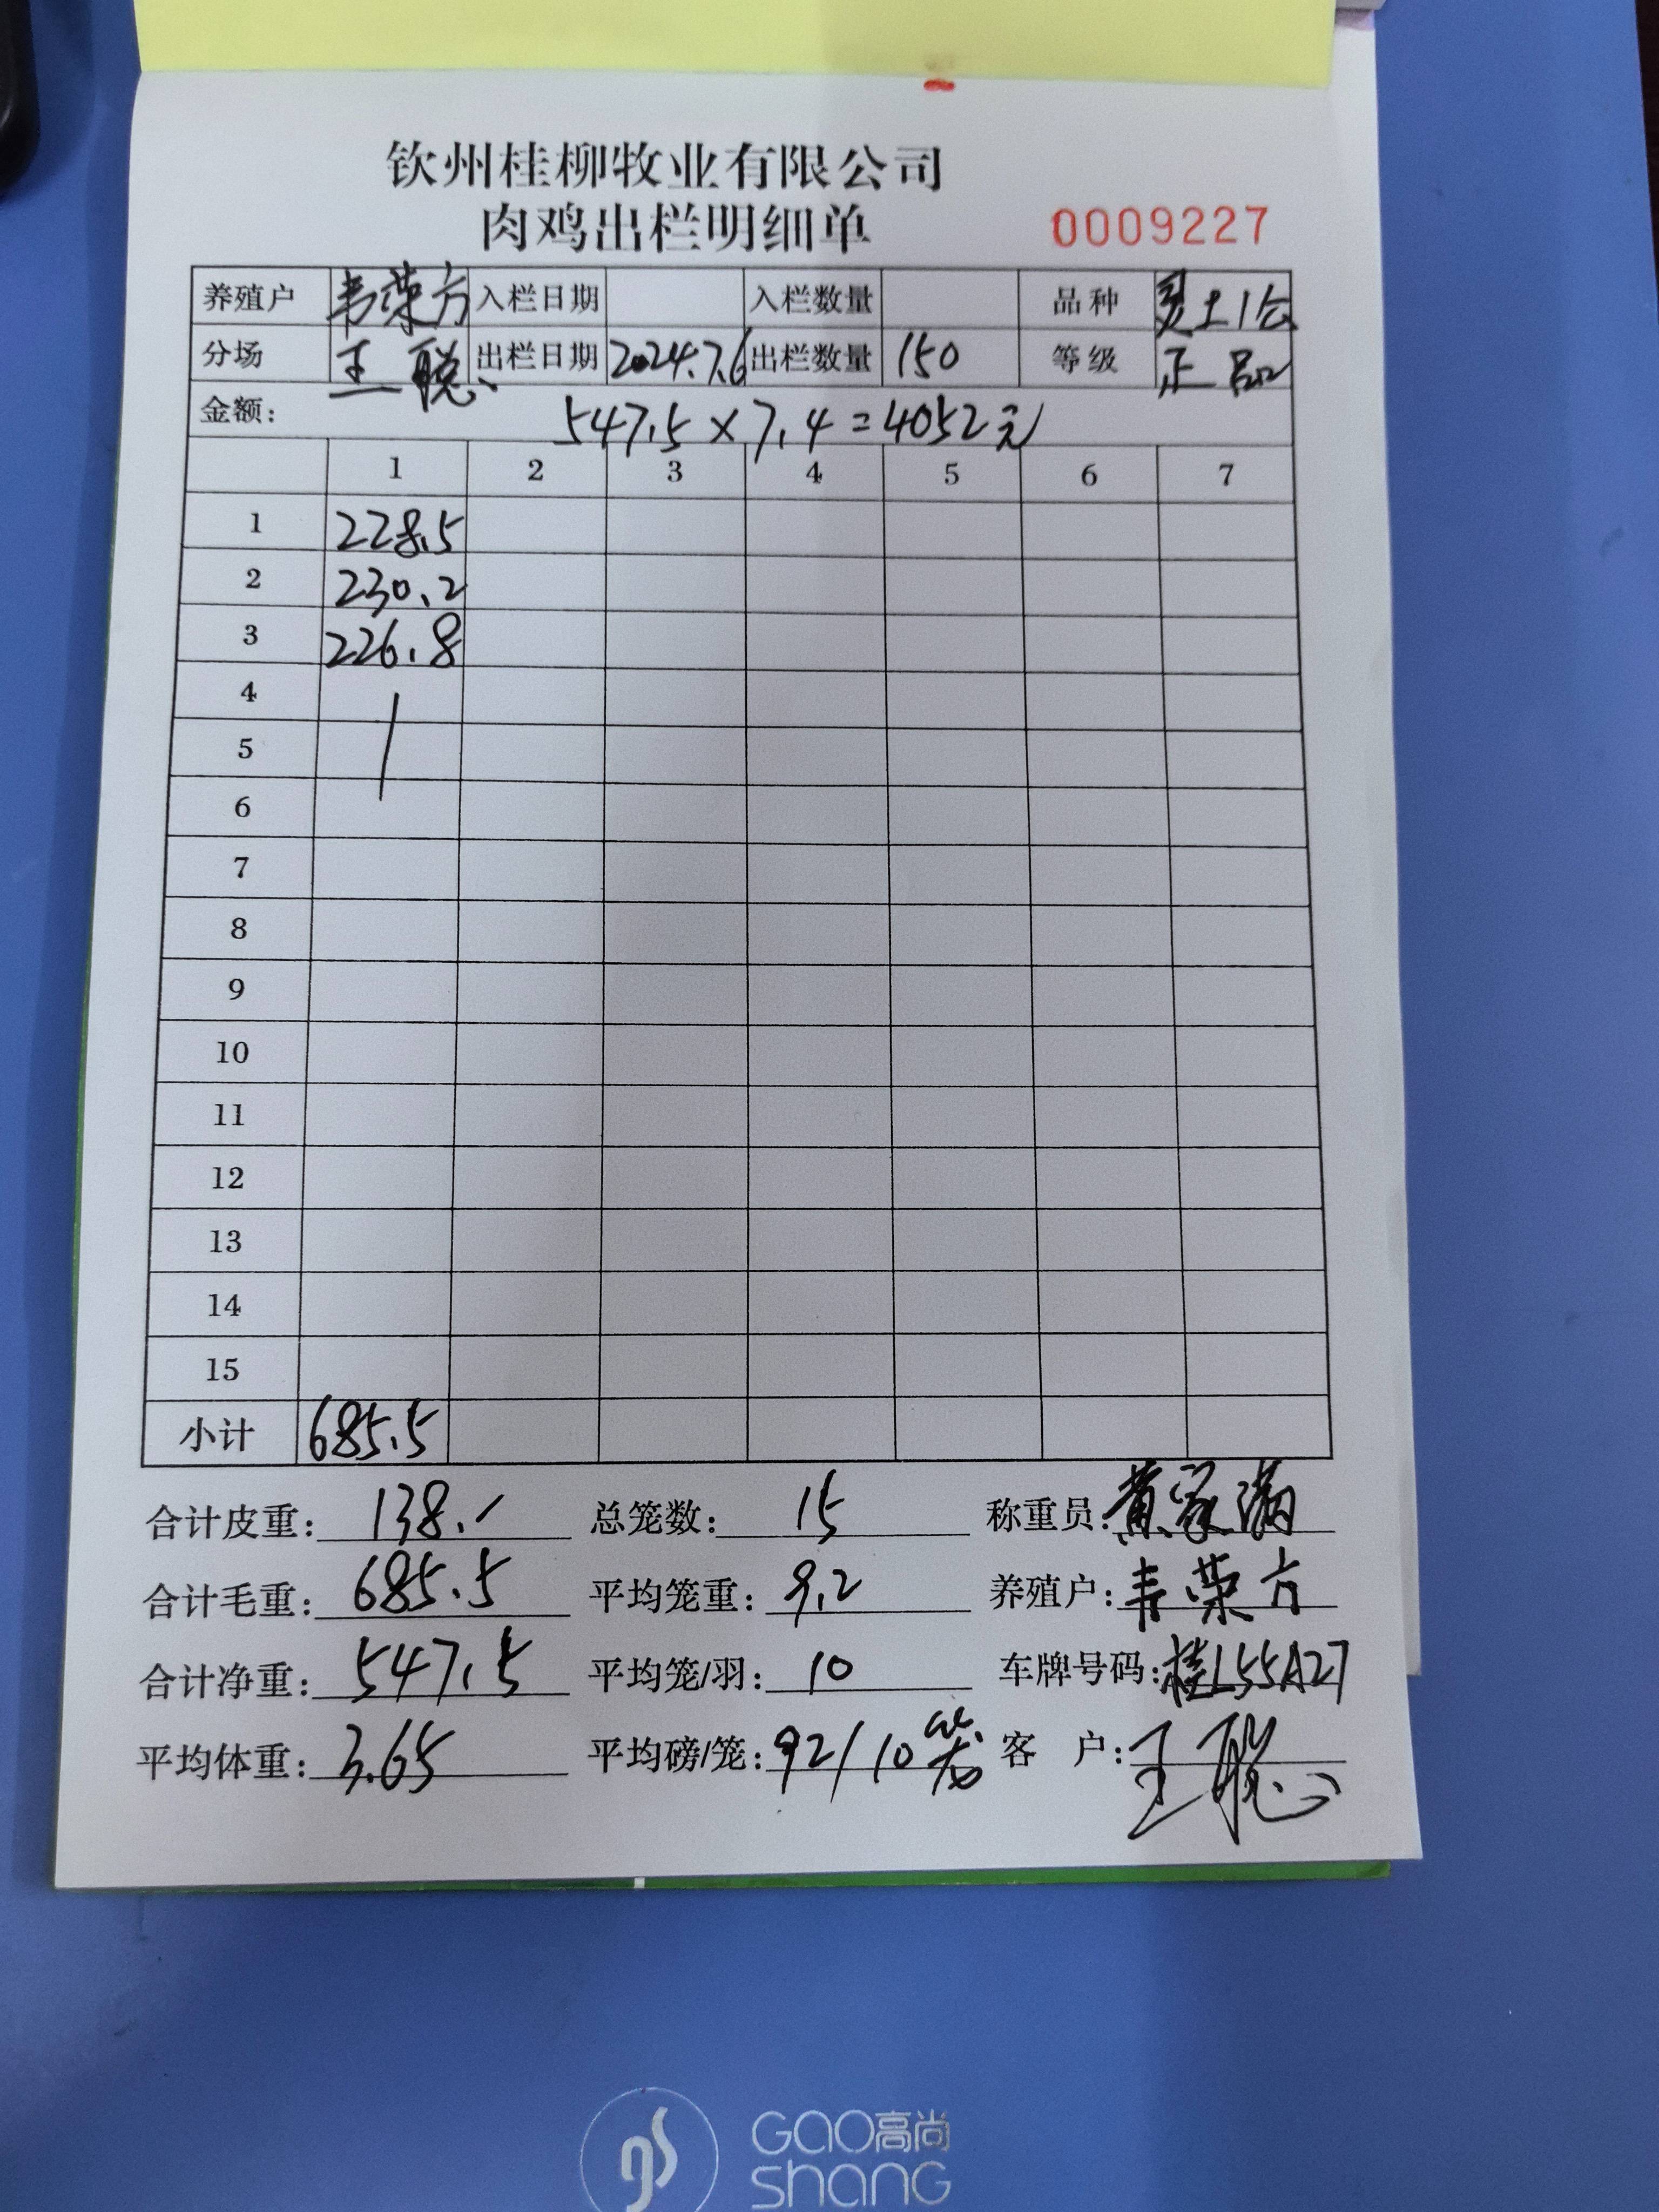 钦州桂柳牧业有限公司
肉鸡出栏明细单 0009227
养殖户 韦荣方 入栏日期 入栏数量 品种 灵土1公
分场 王聪 出栏日期 2024.7.6 出栏数量 150 等级 正品
金额: 547.5×7.4=4052元
1 2 3 4 5 6 7
1 228.5
2 230.2
3 226.8
4
5
6
7
8
9
10
11
12
13
14
15
小计 685.5
合计皮重: 138. 总笼数: 15 称重员: 黄家满
合计毛重: 685.5 平均笼重: 9.2 养殖户: 韦荣方
合计净重: 547.5 平均笼/羽: 10 车牌号码: 桂L55A27
平均体重: 3.65 平均磅/笼: 92/10笼 客户: 王聪
GAO高尚
shang